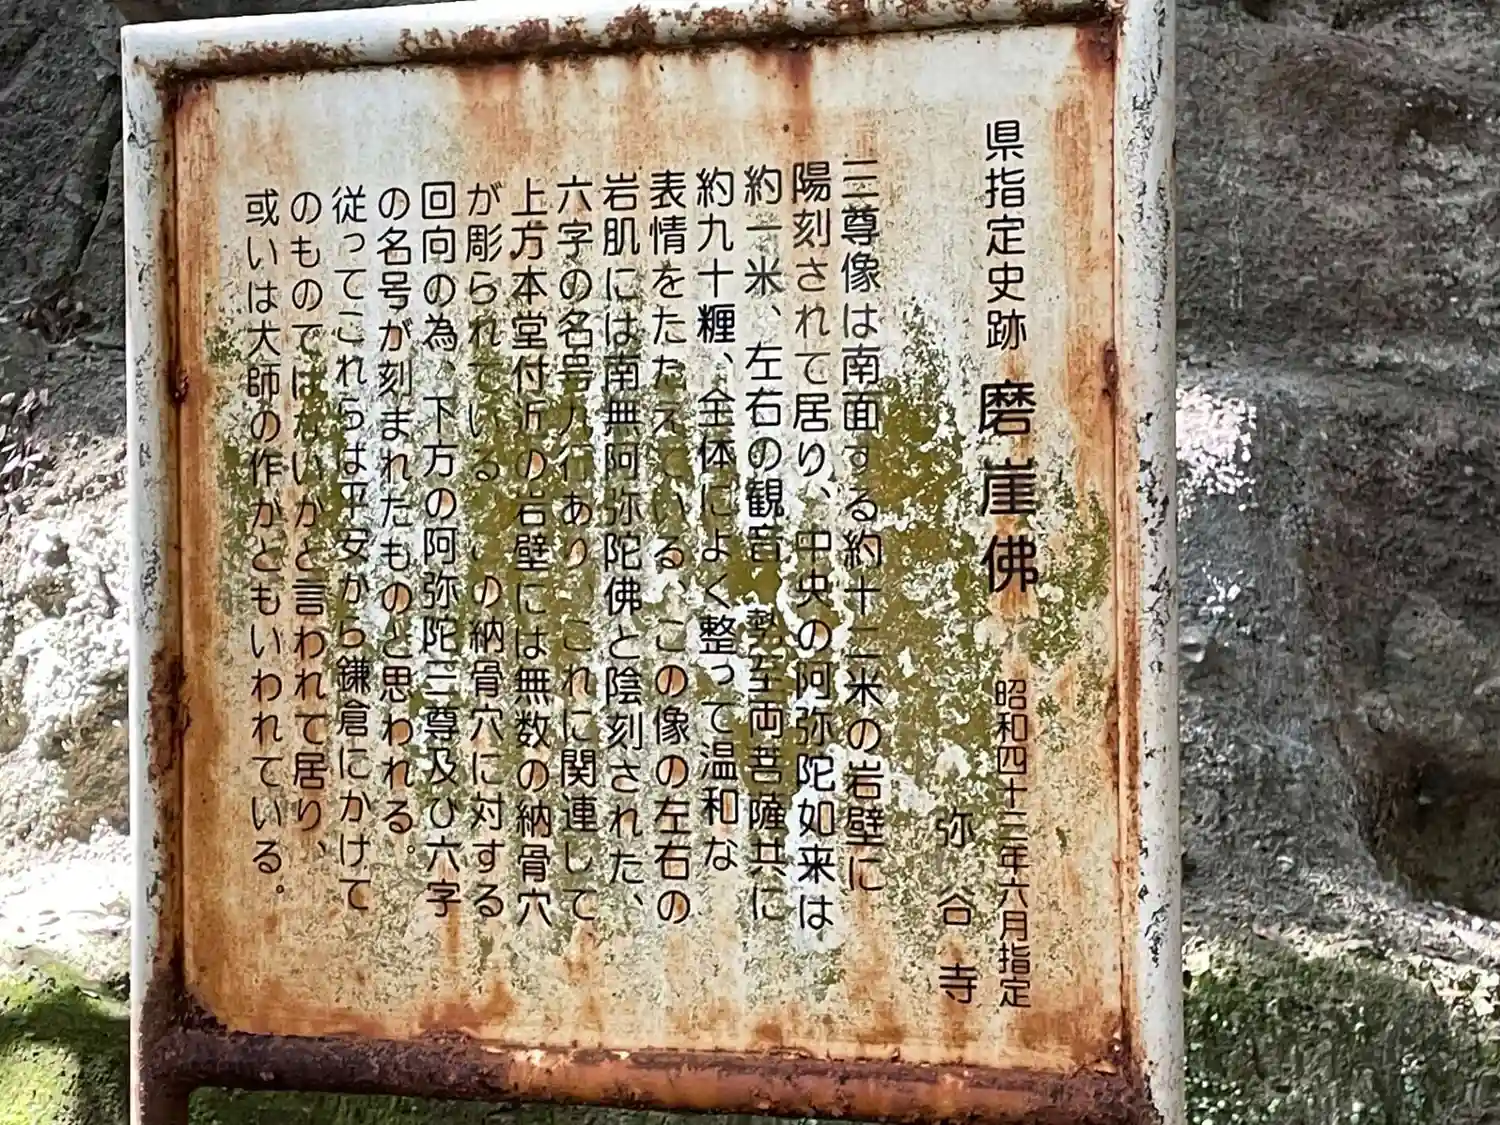 県指定史跡 磨崖佛 昭和四十三年六月指定
弥谷寺
三尊像は南面する約十二米の岩壁に
陽刻されて居り、中央の阿弥陀如来は
約一米、左右の観音、勢至両菩薩共に
約九十糎、全体によく整って温和な
表情をたたえている、この像の左右の
岩肌には南無阿弥陀佛と陰刻された、
六字の名号 あり、これに関連して
上方本堂付近の岩壁には無数の納骨穴
が彫られている の納骨穴に対する
回向の為、下方の阿弥陀三尊及び六字
の名号が刻まれたものと思われる。
従ってこれらは平安から鎌倉にかけて
のものではないかと言われて居り、
或いは大師の作かともいわれている。